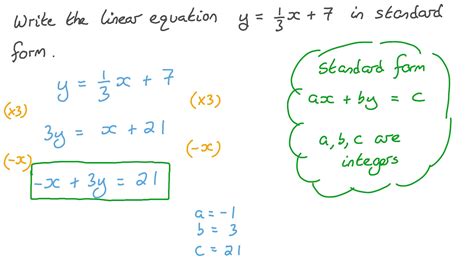 Write the linear equation y = 1/3 x + 7 in standard
form.
y = 1/3 x + 7
(x3) (x3)
3y = x + 21
(-x) (-x)
-x + 3y = 21
a = -1
b = 3
c = 21
Standard form
ax + by = c
a, b, c are
integers